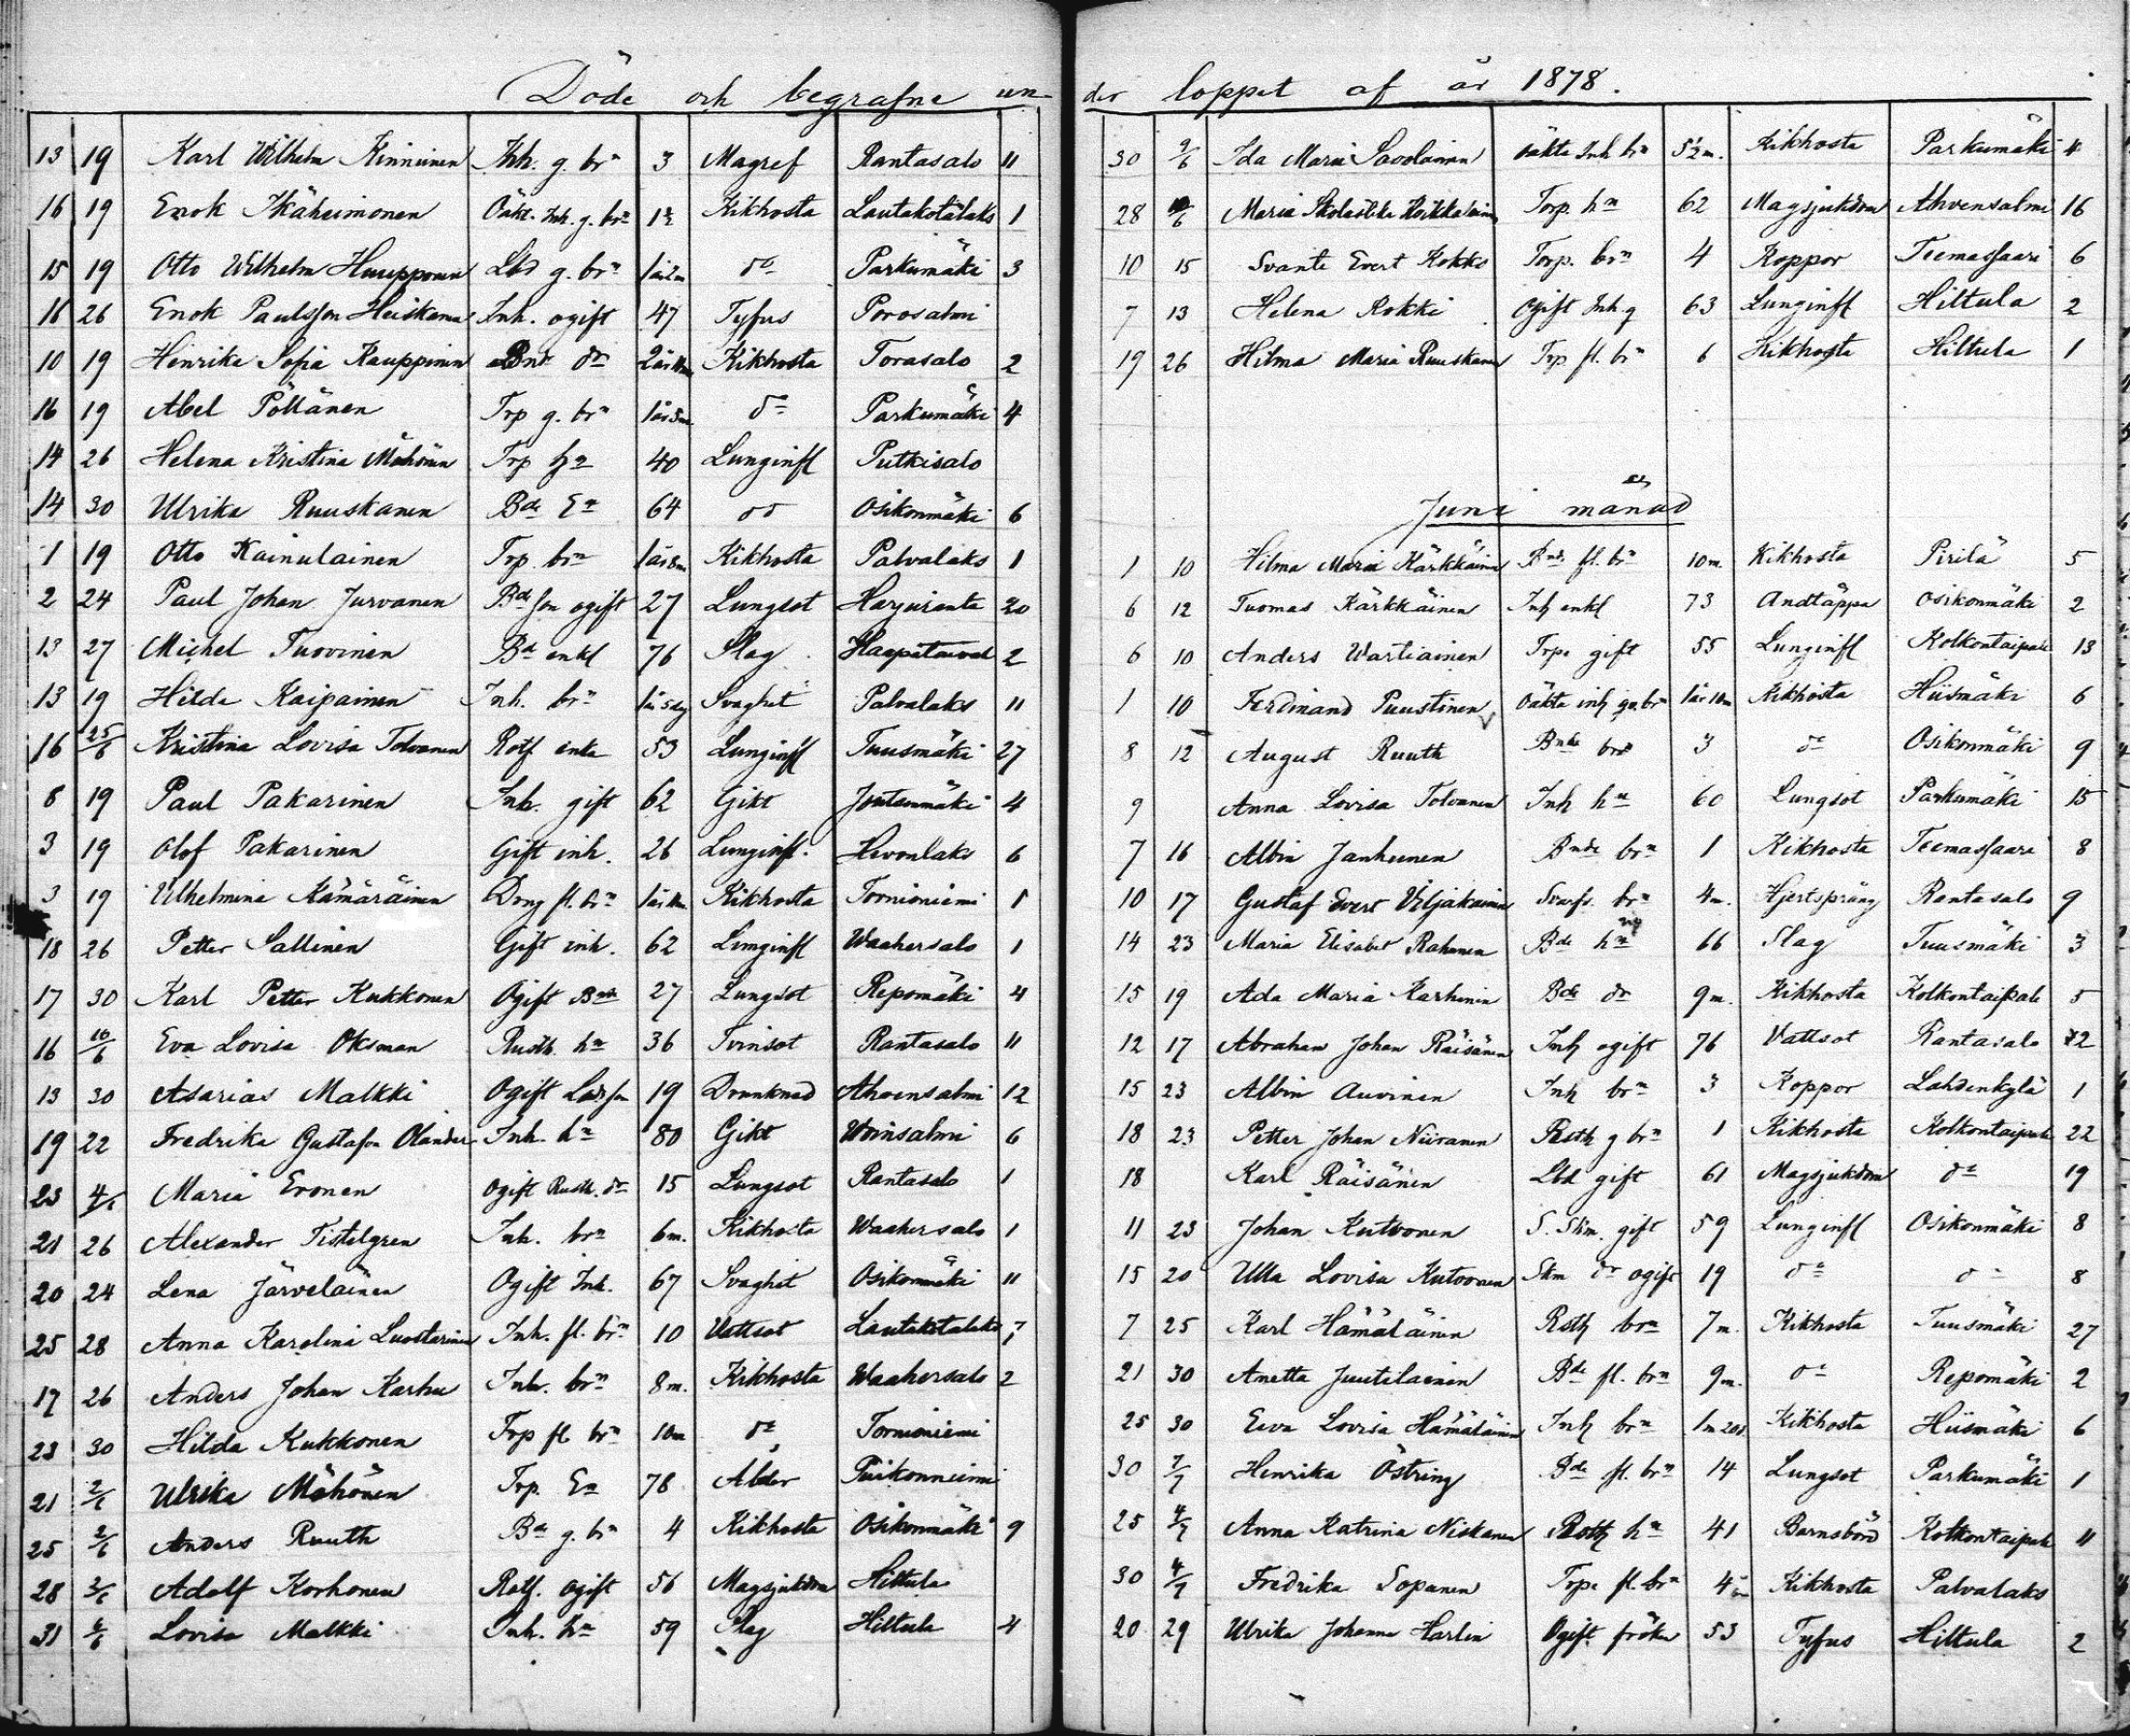 Döde och begrafne un-
13 19 Karl Wilhelm Kinnunen Inh. g. brn 3 Magref Rantasalo 11
16 19 Enok Ikäheimonen Oäkt. Inh. g. brn Kikhosta Lautakotalaks 1
15 19 Otto Wilhelm Huupponen Lbd g. brn 1 år 2m do Parkumäki 3
16 26 Enok Paulsson Heiskanen Inh. ogift 47 Tyfus Porosalmi
10 19 Henrika Sofia Kauppinen Bnd dr Kikhosta Torasalo 2
16 19 Abel Pöllänen Trp g. brn 1 år 3m do Parkumäki 4
14 26 Helena Kristina Möhönen Trp hu 40 Lunginfl Putkisalo
14 30 Ulrika Ruuskanen Bde Ea 64 do Osikonmäki 6
1 19 Otto Kainulainen Trp. brn 1 år 8m Kikhosta Palvalaks 1
2 24 Paul Johan Jurvanen Bd son ogift 27 Lungsot Harjuranta 20
13 27 Michel Tuovinen Bd enkl 76 Slag Haapataival 2
13 19 Hilda Kaipainen Inh. brn 1 år 5 dg Svaghet Palvalaks 11
16 25/6 Kristina Lovisa Tolvanen Rotf enka 53 Lunginfl Tuusmäki 27
6 19 Paul Pakarinen Inh. gift 62 Gikt Joutsenmäki 4
3 19 Olof Pakarinen Gift inh. 26 Lunginfl. Hevonlaks 6
3 19 Vilhelmina Kämäräinen Drng fl. brn Kikhosta Tornioniemi 1
18 26 Petter Sallinen Gift inh. 62 Lunginfl Waahersalo 1
17 30 Karl Petter Kukkonen Ogift Bnde 27 Lungsot Repomäki 4
16 10/6 Eva Lovisa Oksman Rusth. hn 36 Tvinsot Rantasalo 11
13 30 Asarias Malkki Ogift Lbds son 19 Drunknad Ahvensalmi 12
19 22 Fredrika Gustafva Olander Inh. hn 80 Gikt Woinsalmi 6
23 4/6 Maria Eronen Ogift Rusth. dr 15 Lungsot Rantasalo 1
21 26 Alexander Tistelgren Inh. brn 6m. Kikhosta Waahersalo 1
20 24 Lena Järveläinen Ogift Inh. 67 Svaghet Osikonmäki 11
25 28 Anna Karolina Luostarinen Inh. fl. brn 10 Vattsot Lautakotalaks
17 26 Anders Johan Karhu Inh. brn 8m. Kikhosta Waahersalo 2
23 30 Hilda Kukkonen Trp fl brn 10m do Tornioniemi
21 2/6 Ulrika Möhönen Trp. Ea 78 Ålder Puikonniemi
25 2/6 Anders Ruuth Bde g. brn 4 Kikhosta Osikonmäki 9
28 2/6 Adolf Korhonen Rotf. ogift 56 Magsjukdom Hiltula
31 6/6 Lovisa Malkki Inh. hn 59 Slag Hiltula 4
der loppet af år 1878.
30 9/6 Ida Maria Savolainen oäkta Inh brn 5½m. Kikhosta Parkumäki 4
28 Maria Skolastika Koikkalainen Torp. hn 62 Magsjukdom Ahvensalmi 16
10 15 Svante Evert Kokko Torp. brn 4 Koppor Teemassaari 6
7 13 Helena Kokki Ogift Inh g 63 Lunginfl Hiltula 2
19 26 Hilma Maria Ruuskanen Trp fl. brn 6 Kikhosta Hiltula 1
Juni månad
1 10 Hilma Maria Kärkkäinen Bnde fl. brn 10m. Kikhosta Pirilä 5
6 12 Tuomas Kärkkäinen Inh enkl 73 Andtäppa Osikonmäki 2
6 10 Anders Wartiainen Trpe gift 55 Lunginfl Kolkontaipale 13
1 10 Ferdinand Puustinen Oäkta inh ga. brn 1 år 10m Kikhosta Hiismäki 6
8 12 August Ruuth Bnde brn 3 do Osikonmäki 9
9 Anna Lovisa Tolvanen Inh hn 60 Lungsot Parkumäki 15
7 16 Albin Janhunen Bnde brn 1 Kikhosta Teemassaari 8
10 17 Gustaf Evert Viljakainen Svarfv. brn 4m. Hjertspräng Rantasalo 9
14 23 Maria Elisabet Rahunen Bde hn 66 Slag Tuusmäki 3
15 19 Ada Maria Karhinen Bde dr 9m. Kikhosta Kolkontaipale 5
12 17 Abraham Johan Räisänen Inh ogift 76 Vattsot Rantasalo 12
15 23 Albin Auvinen Inh brn 3 Koppor Lahdenkylä 1
18 23 Petter Johan Niiranen Rsth g brn 1 Kikhosta Kolkontaipale 22
18 Karl Räisänen Lbd gift 61 Magsjukdom do 19
11 23 Johan Kutvonen S. Skm. gift 59 Lunginfl Osikonmäki 8
15 20 Ulla Lovisa Kutvonen Skm dr ogift 19 do do 8
7 25 Karl Hämäläinen Rsth brn 7m. Kikhosta Tuusmäki 27
21 30 Anetta Juutilainen Bde fl. brn 9m. do Repomäki 2
25 30 Eeva Lovisa Hämäläinen Inh brn 1m 20d Kikhosta Hiismäki 6
30 7/7 Henrika Östring Bde fl. brn 14 Lungsot Parkumäki 1
25 4/7 Anna Katrina Niskanen Rsth hn 41 Barnsbörd Kolkontaipale 11
30 4/7 Fredrika Sopanen Trpe fl. brn Kikhosta Palvalaks
20 29 Ulrika Johanna Harlin Ogift fröken 53 Tyfus Hiltula 2